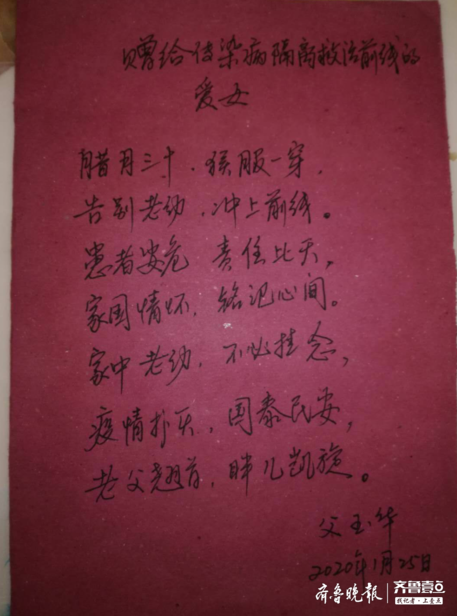 赠给传染病隔离救治前线的
爱女
腊月三十,猴服一穿,
告别老幼,冲上前线。
患者安危 责任比天,
家国情怀,铭记心间。
家中老幼,不必挂念,
疫情扑灭,国泰民安,
老父翘首,盼儿凯旋。
父玉华
2020年1月25日
齐鲁晚报 齐鲁壹点